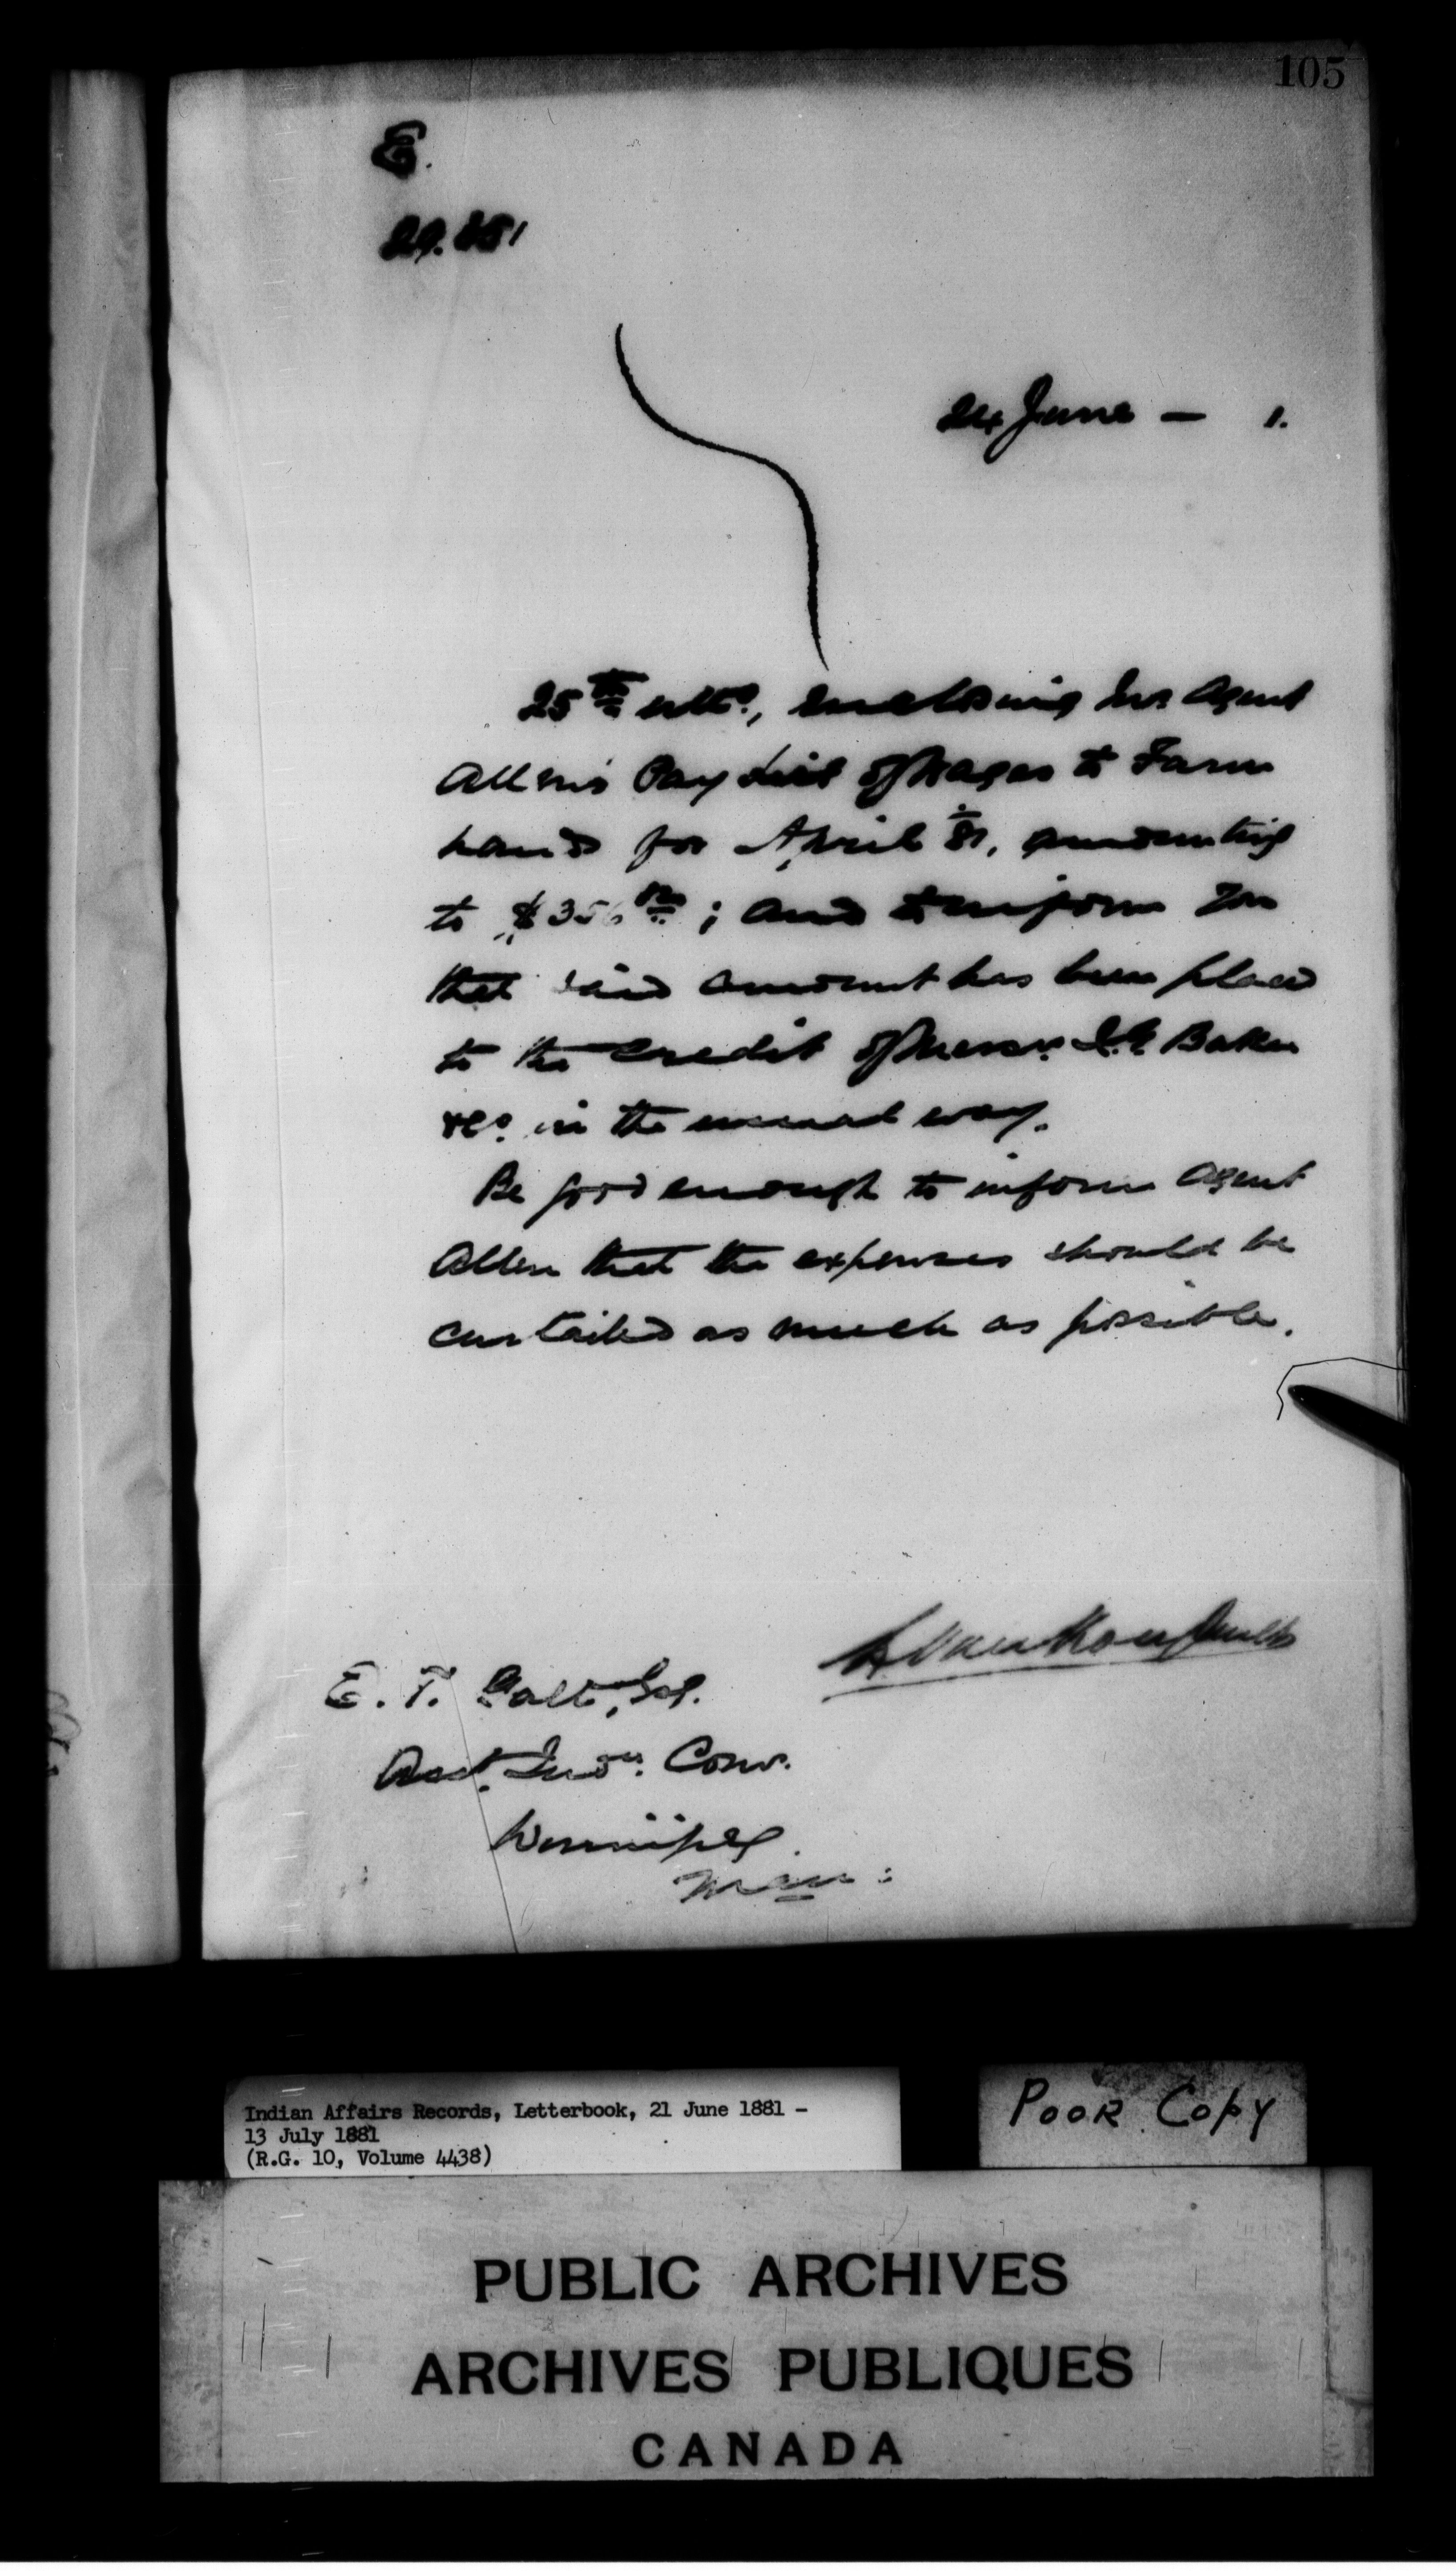 105
E.
29.881
24 June — 1.
25th ulto., enclosing Ind. Agent
Allen's Pay List of Wages to Farm
hands for April /81, amounting
to $356
; and to inform you
that said amount has been placed
to the credit of Messrs. I.G. Baker
&Co. in the usual way.
Be good enough to inform Agent
Allen that the expenses should be
curtailed as much as possible.
L. Vankoughnet
E. T. Galt, Esq.
Asst. Indn. Comr.
Winnipeg.
Man:
Indian Affairs Records, Letterbook, 21 June 1881 –
13 July 1881
(R.G. 10, Volume 4438)
POOR COPY
PUBLIC ARCHIVES
ARCHIVES PUBLIQUES
CANADA